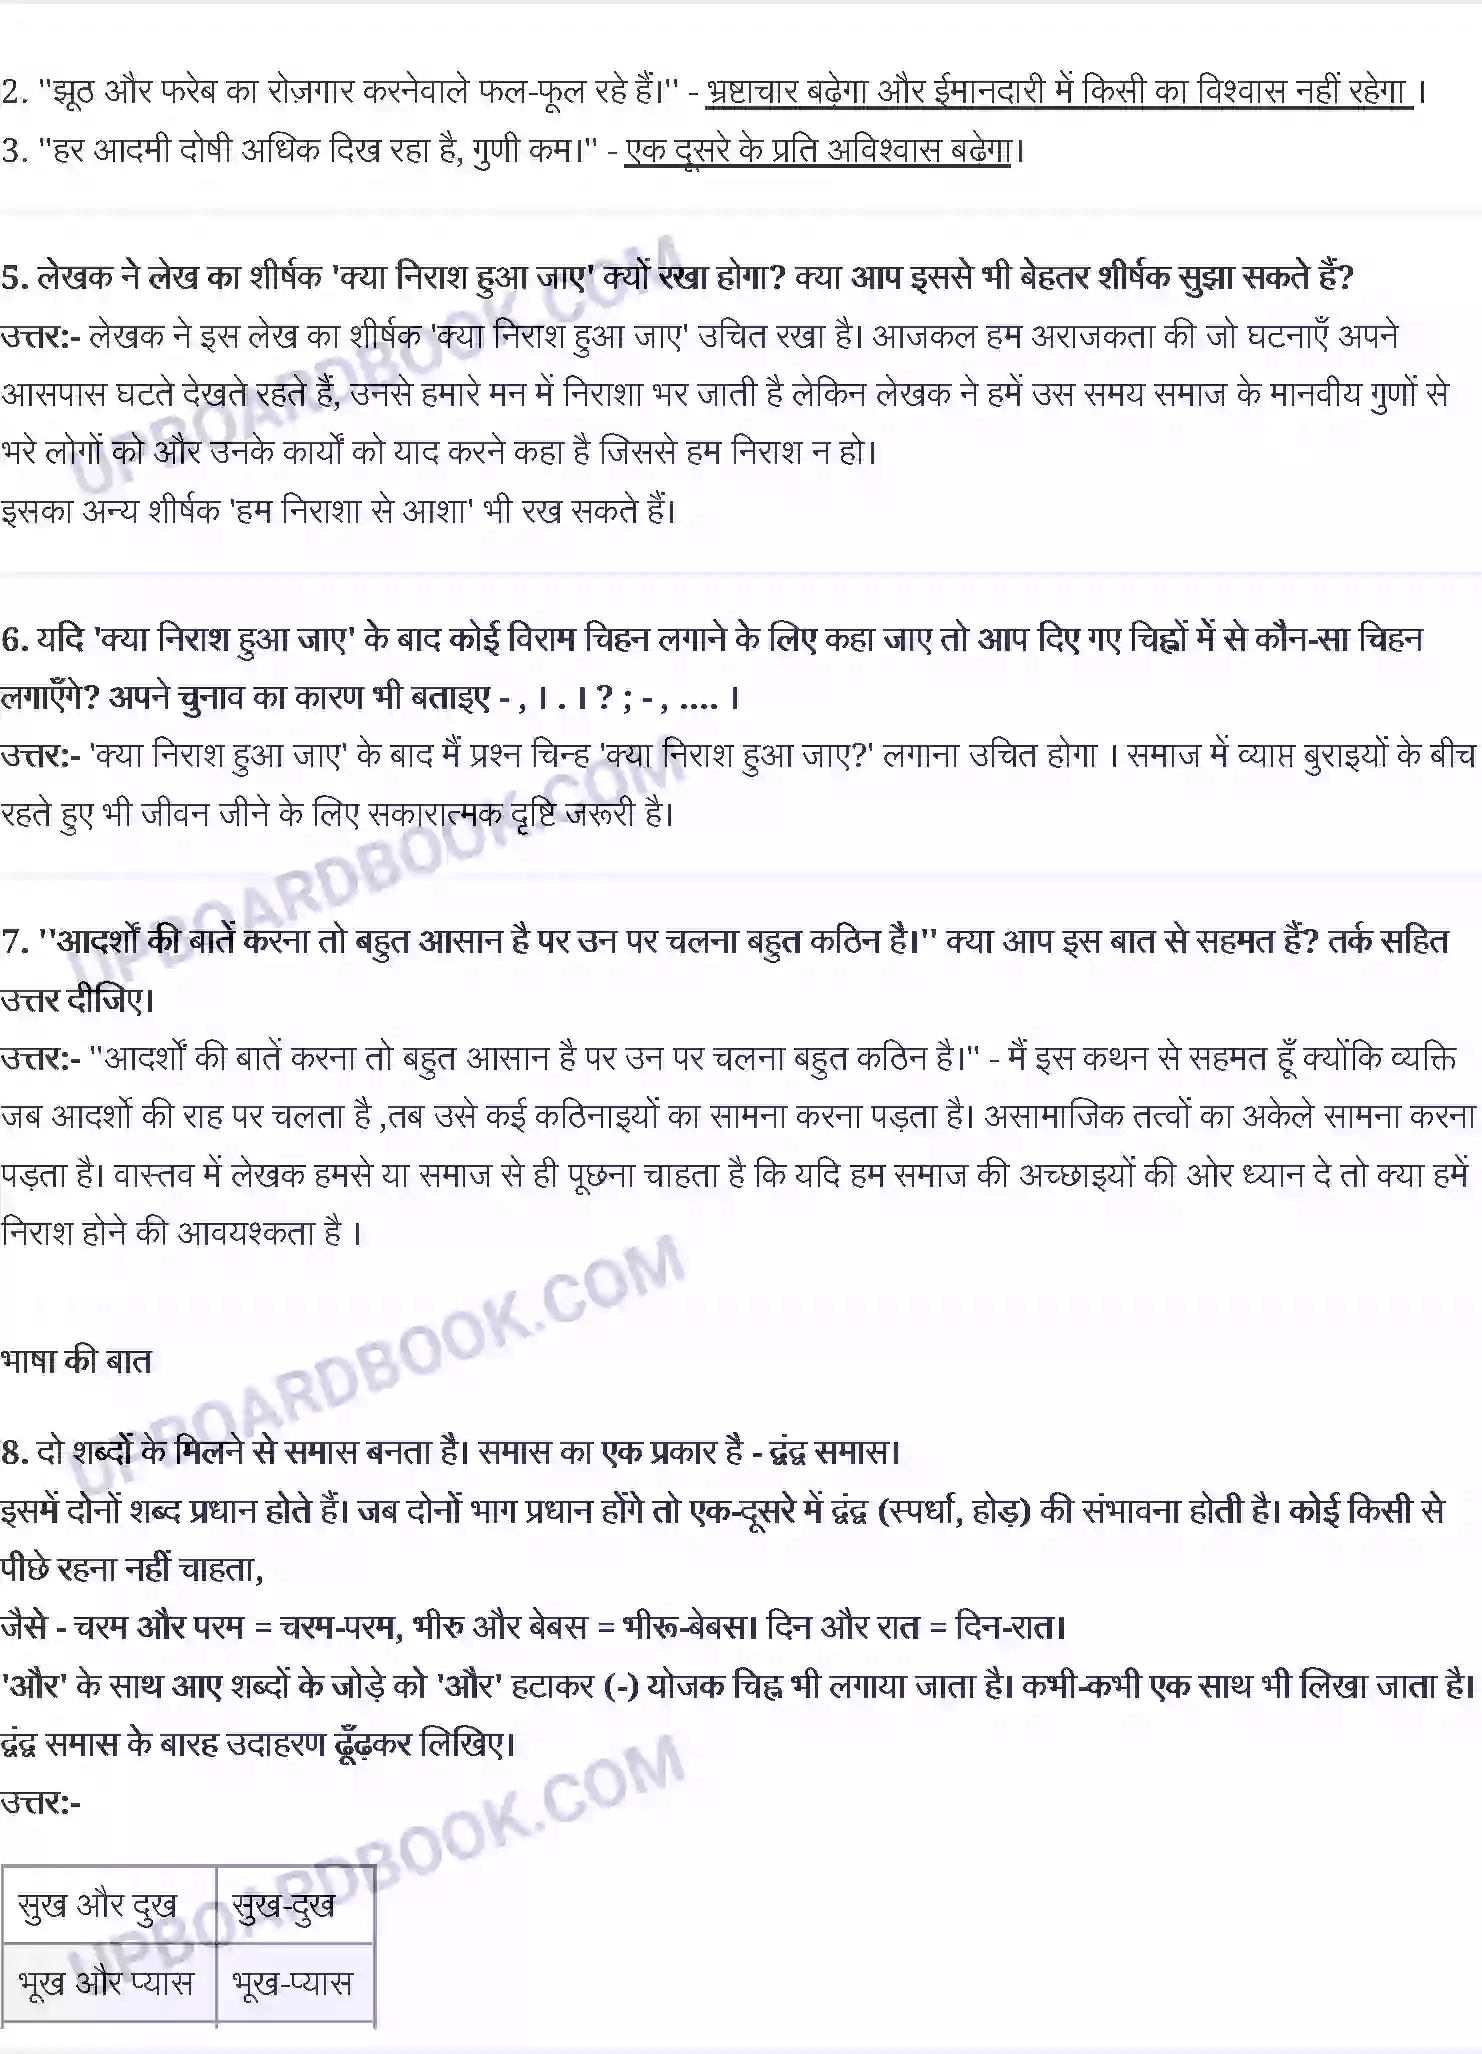 2. "झूठ और फरेब का रोज़गार करनेवाले फल-फूल रहे हैं।" - भ्रष्टाचार बढ़ेगा और ईमानदारी में किसी का विश्वास नहीं रहेगा ।
3. "हर आदमी दोषी अधिक दिख रहा है, गुणी कम।" - एक दूसरे के प्रति अविश्वास बढेगा।
5. लेखक ने लेख का शीर्षक 'क्या निराश हुआ जाए' क्यों रखा होगा? क्या आप इससे भी बेहतर शीर्षक सुझा सकते हैं?
उत्तर:- लेखक ने इस लेख का शीर्षक 'क्या निराश हुआ जाए' उचित रखा है। आजकल हम अराजकता की जो घटनाएँ अपने
आसपास घटते देखते रहते हैं, उनसे हमारे मन में निराशा भर जाती है लेकिन लेखक ने हमें उस समय समाज के मानवीय गुणों से
भरे लोगों को और उनके कार्यों को याद करने कहा है जिससे हम निराश न हो।
इसका अन्य शीर्षक 'हम निराशा से आशा' भी रख सकते हैं।
6. यदि 'क्या निराश हुआ जाए' के बाद कोई विराम चिहन लगाने के लिए कहा जाए तो आप दिए गए चिह्नों में से कौन-सा चिहन
लगाएँगे? अपने चुनाव का कारण भी बताइए - , । . । ? ; - , .... ।
उत्तर:- 'क्या निराश हुआ जाए' के बाद मैं प्रश्न चिन्ह 'क्या निराश हुआ जाए?' लगाना उचित होगा । समाज में व्याप्त बुराइयों के बीच
रहते हुए भी जीवन जीने के लिए सकारात्मक दृष्टि जरूरी है।
7. "आदर्शों की बातें करना तो बहुत आसान है पर उन पर चलना बहुत कठिन है।" क्या आप इस बात से सहमत हैं? तर्क सहित
उत्तर दीजिए।
उत्तर:- "आदर्शों की बातें करना तो बहुत आसान है पर उन पर चलना बहुत कठिन है।" - मैं इस कथन से सहमत हूँ क्योंकि व्यक्ति
जब आदर्शो की राह पर चलता है ,तब उसे कई कठिनाइयों का सामना करना पड़ता है। असामाजिक तत्वों का अकेले सामना करना
पड़ता है। वास्तव में लेखक हमसे या समाज से ही पूछना चाहता है कि यदि हम समाज की अच्छाइयों की ओर ध्यान दे तो क्या हमें
निराश होने की आवयश्कता है ।
भाषा की बात
8. दो शब्दों के मिलने से समास बनता है। समास का एक प्रकार है - द्वंद्व समास।
इसमें दोनों शब्द प्रधान होते हैं। जब दोनों भाग प्रधान होंगे तो एक-दूसरे में द्वंद्व (स्पर्धा, होड़) की संभावना होती है। कोई किसी से
पीछे रहना नहीं चाहता,
जैसे - चरम और परम = चरम-परम, भीरु और बेबस = भीरू-बेबस। दिन और रात = दिन-रात।
'और' के साथ आए शब्दों के जोड़े को 'और' हटाकर (-) योजक चिह्न भी लगाया जाता है। कभी-कभी एक साथ भी लिखा जाता है।
द्वंद्व समास के बारह उदाहरण ढूँढ़कर लिखिए।
उत्तर:-
सुख और दुख सुख-दुख
भूख और प्यास भूख-प्यास
UPBOARDBOOK.COM
UPBOARDBOOK.COM
UPBOARDBOOK.COM
UPBOARDBOOK.COM